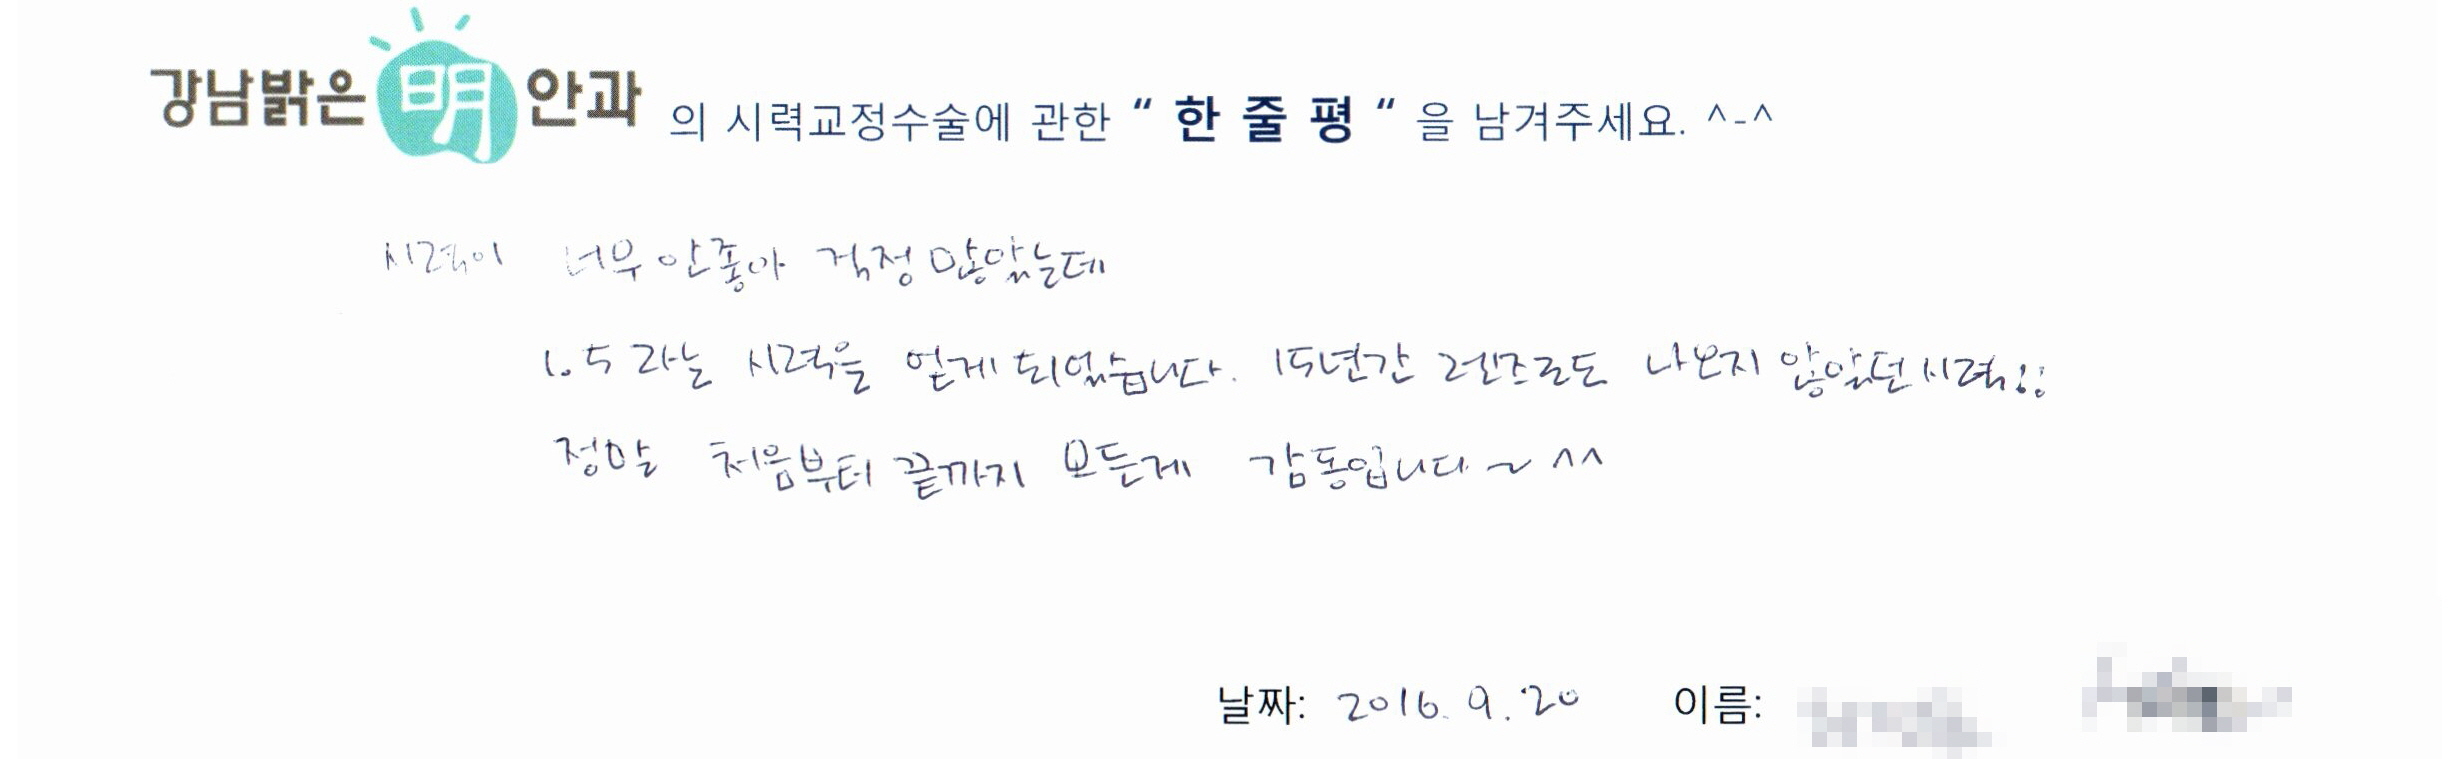 강남밝은明안과 의 시력교정수술에 관한 “ 한 줄 평 “ 을 남겨주세요. ^-^
시력이 너무 안좋아 걱정 많았는데
1.5 라는 시력을 얻게 되었습니다. 15년간 렌즈로도 나오지 않았던 시력!!
정말 처음부터 끝까지 모든게 감동입니다~ ^^
날짜: 2016. 9. 20 이름: